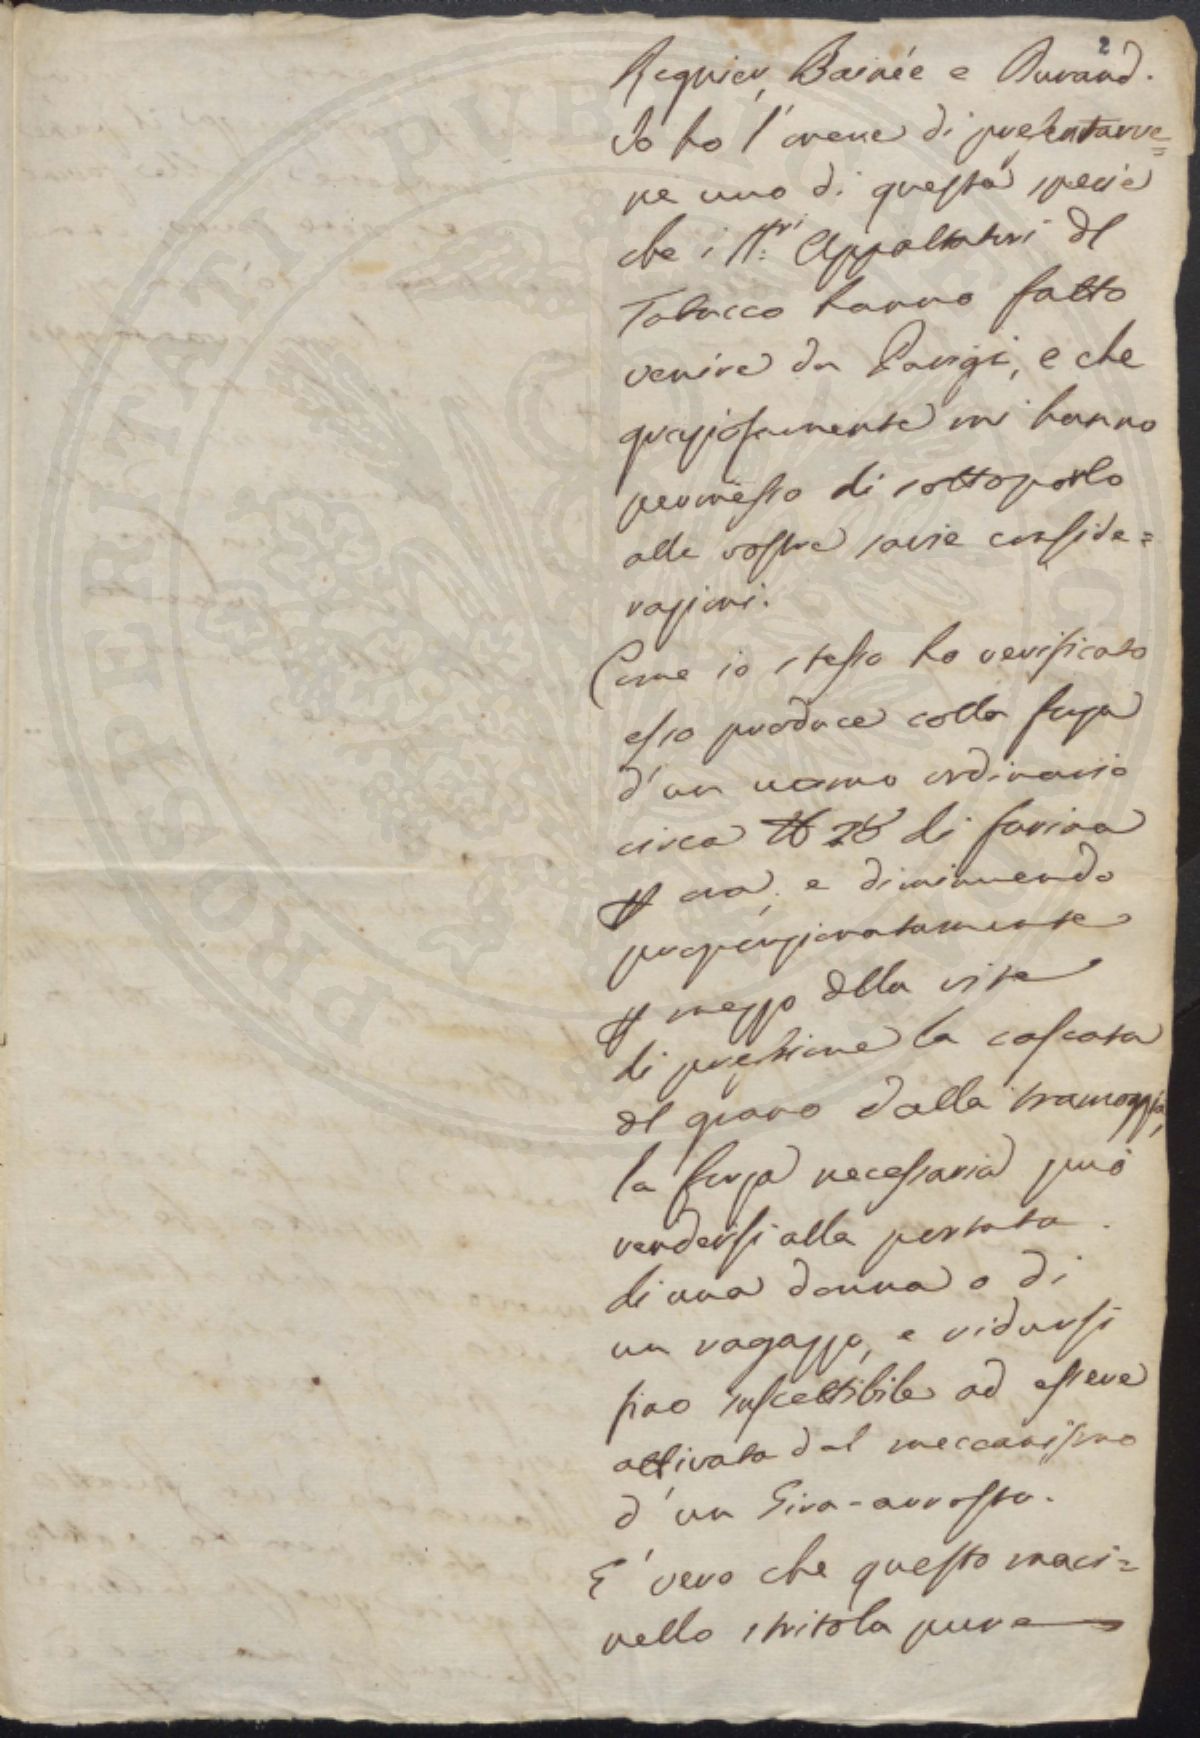 2
Regnier, Bainée e Durand.
Io ho l'onore di presentarve=
ne uno di questa specie
che i SS:ri Appaltatori del
Tabacco hanno fatto
venire da Parigi, e che
graziosamente mi hanno
permesso di sottoporlo
alle vostre savie conside=
razioni.
Come io stesso ho verificato
esso produce colla forza
d'un uomo ordinario
circa ℔ 28 di farina
ora, e diminuendo
proporzionatamente
mezzo della vite
di pressione la cascata
del grano dalla tramoggia,
la forza necessaria può
rendersi alla portata
di una donna o di
un ragazzo, e ridursi
fino suscettibile ad essere
attivata dal meccanismo
d'un Gira-arrosto.
E' vero che questo maci=
nello stritola pure
PROSPERITATI PUBLICAE